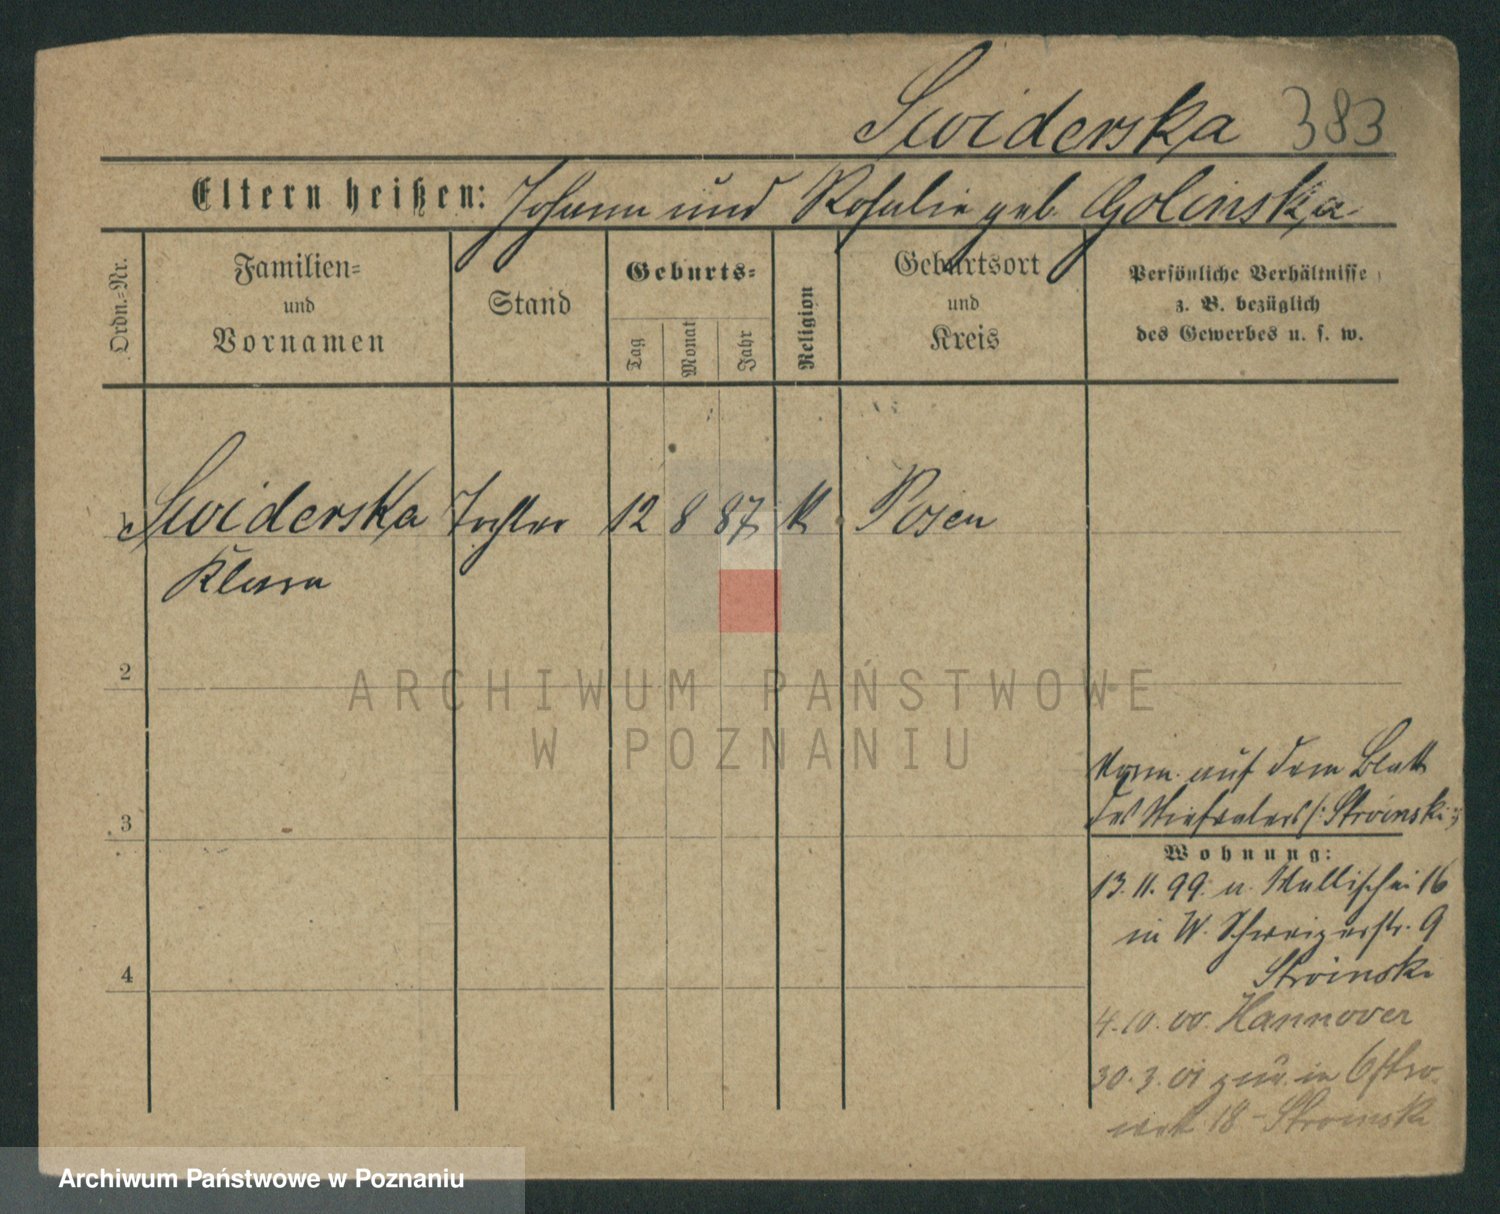 Swiderska 383
Eltern heißen: Johann und Rosalie geb. Golinska
Ordn.=Nr.
Familien=
und
Vornamen
Stand
Geburts=
Tag
Monat
Jahr
Religion
Geburtsort
und
Kreis
Persönliche Verhältnisse
z. B. bezüglich
des Gewerbes u. s. w.
1 Swiderska Tochter 12 8 87 k Posen
Klara
2
ARCHIWUM PAŃSTWOWE
W POZNANIU
auf dem Blatt
des Stiefvaters /: Stroinski :/
3
Wohnung:
13. 11. 99. n. Wallischei 16
in W. Schweizerstr. 9
Stroinski
4
4. 10. 00. Hannover
30. 3. 01 zur. in Ostro-
wek 18 - Stroinski
Archiwum Państwowe w Poznaniu